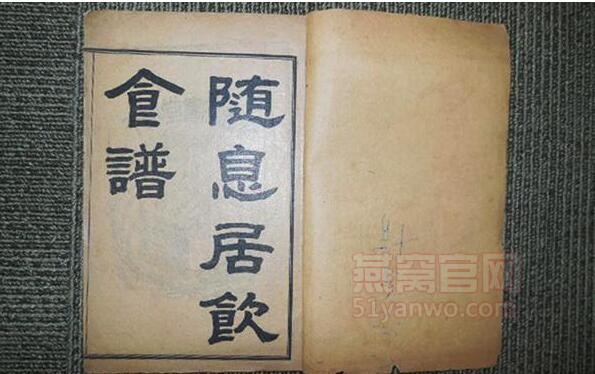 随息居飲
食譜
燕窝官网
51yanwo.com